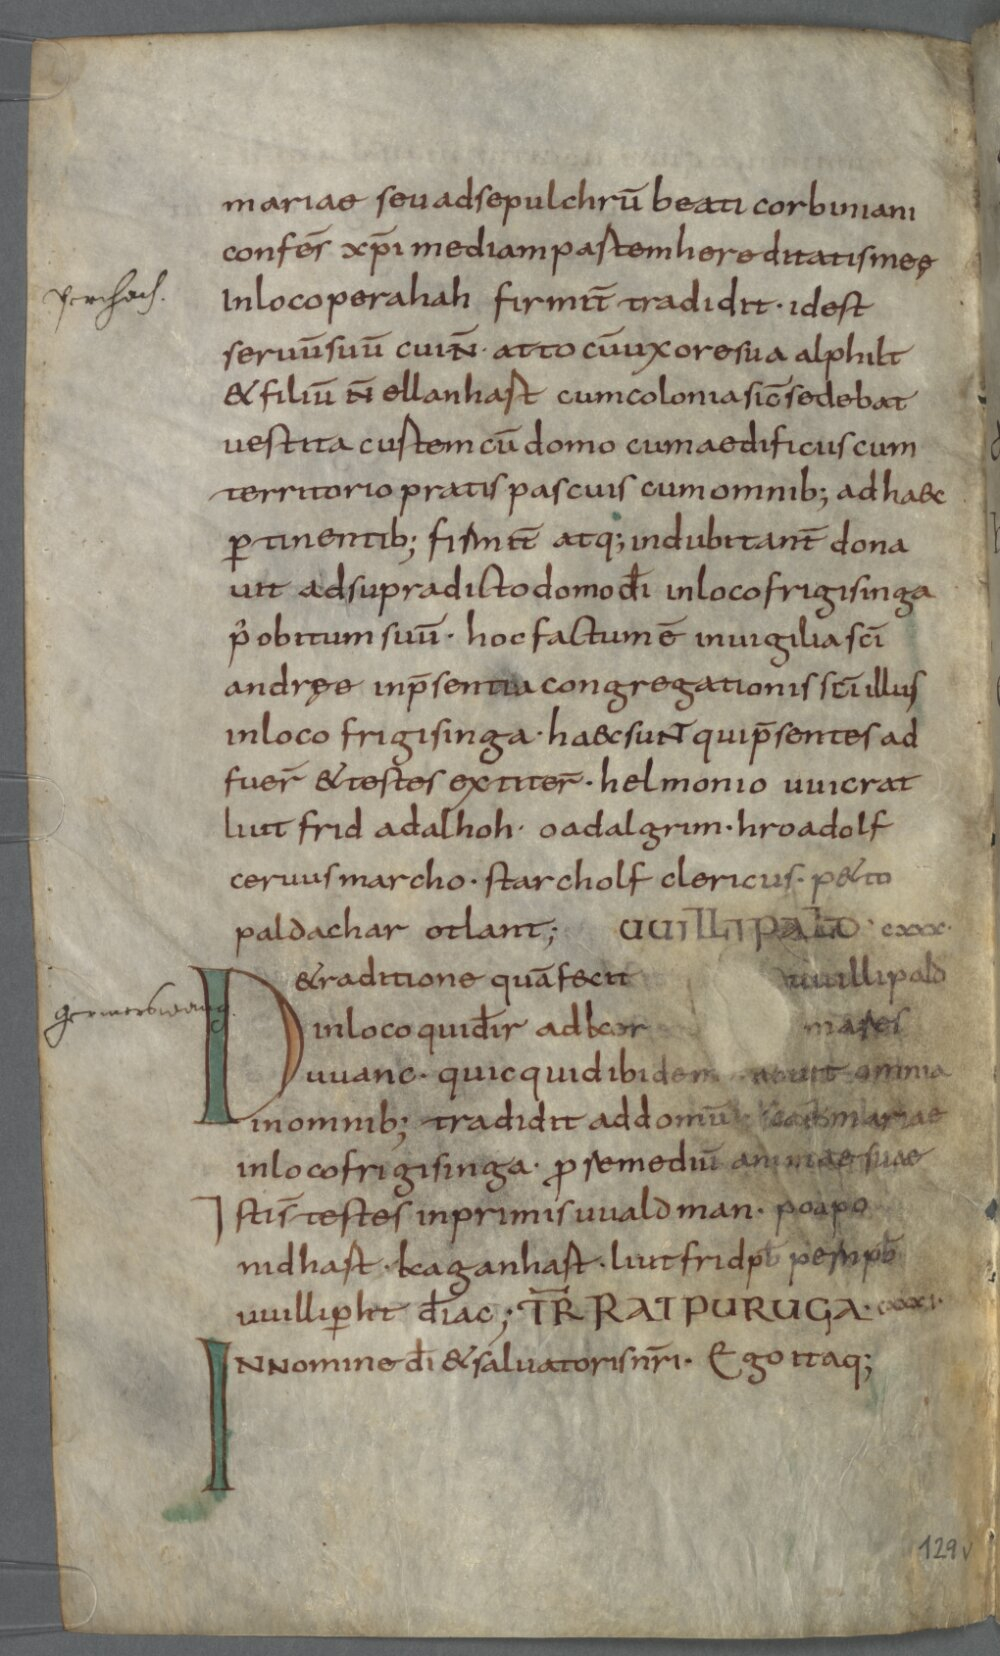 mariae seu ad sepulchrū beati corbiniani
confes̄ xp̄i mediam partem hereditatis meę
perchach.
In loco perahah firmit̄ tradidit · id est
seruū suū cui N̄ · atto cū uxore sua alphilt
& filiū N̄ ellanhast cum colonia sic̄ sedebat
uestita custem cū domo cum aedificiis cum
territorio pratis pascuis cum omnib; ad haec
ꝑtinentib; firmit̄ atq; indubitant̄ dona
uit ad supradicto domo d̄i in loco frigisinga
p̾ obitum suū · hoc factum ē in uigilia sc̄i
andręe in p̄sentia congregationis sc̄i illius
in loco frigisinga · haec sunt qui p̄sentes ad
fuer̄ & testes extiter̄ · helmonio uuicrat
liutfrid adalhoh · oadalgrim · hroadolf
ceruus marcho · starcholf clericus · p&to
paldachar otlant; UUILLIPALD · cxxx ·
D& traditione quā fecit uuillipald
germerswang.
in loco qui d̄r ad kcor mares
uuanc · quicquid ibidem omnia
in omnib; tradidit ad domū mariae
in loco frigisinga · ꝓ remediū animae suae
Istis̄ testes in primis uualdman · poapo
nidhast · kcaganhast · liutfrid pb̄
uuilliꝑht d̄iac; TR̄ RATPURUGA · cxxxi ·
IN nomine d̄i & saluatoris nr̄i · Ego itaq;
129v